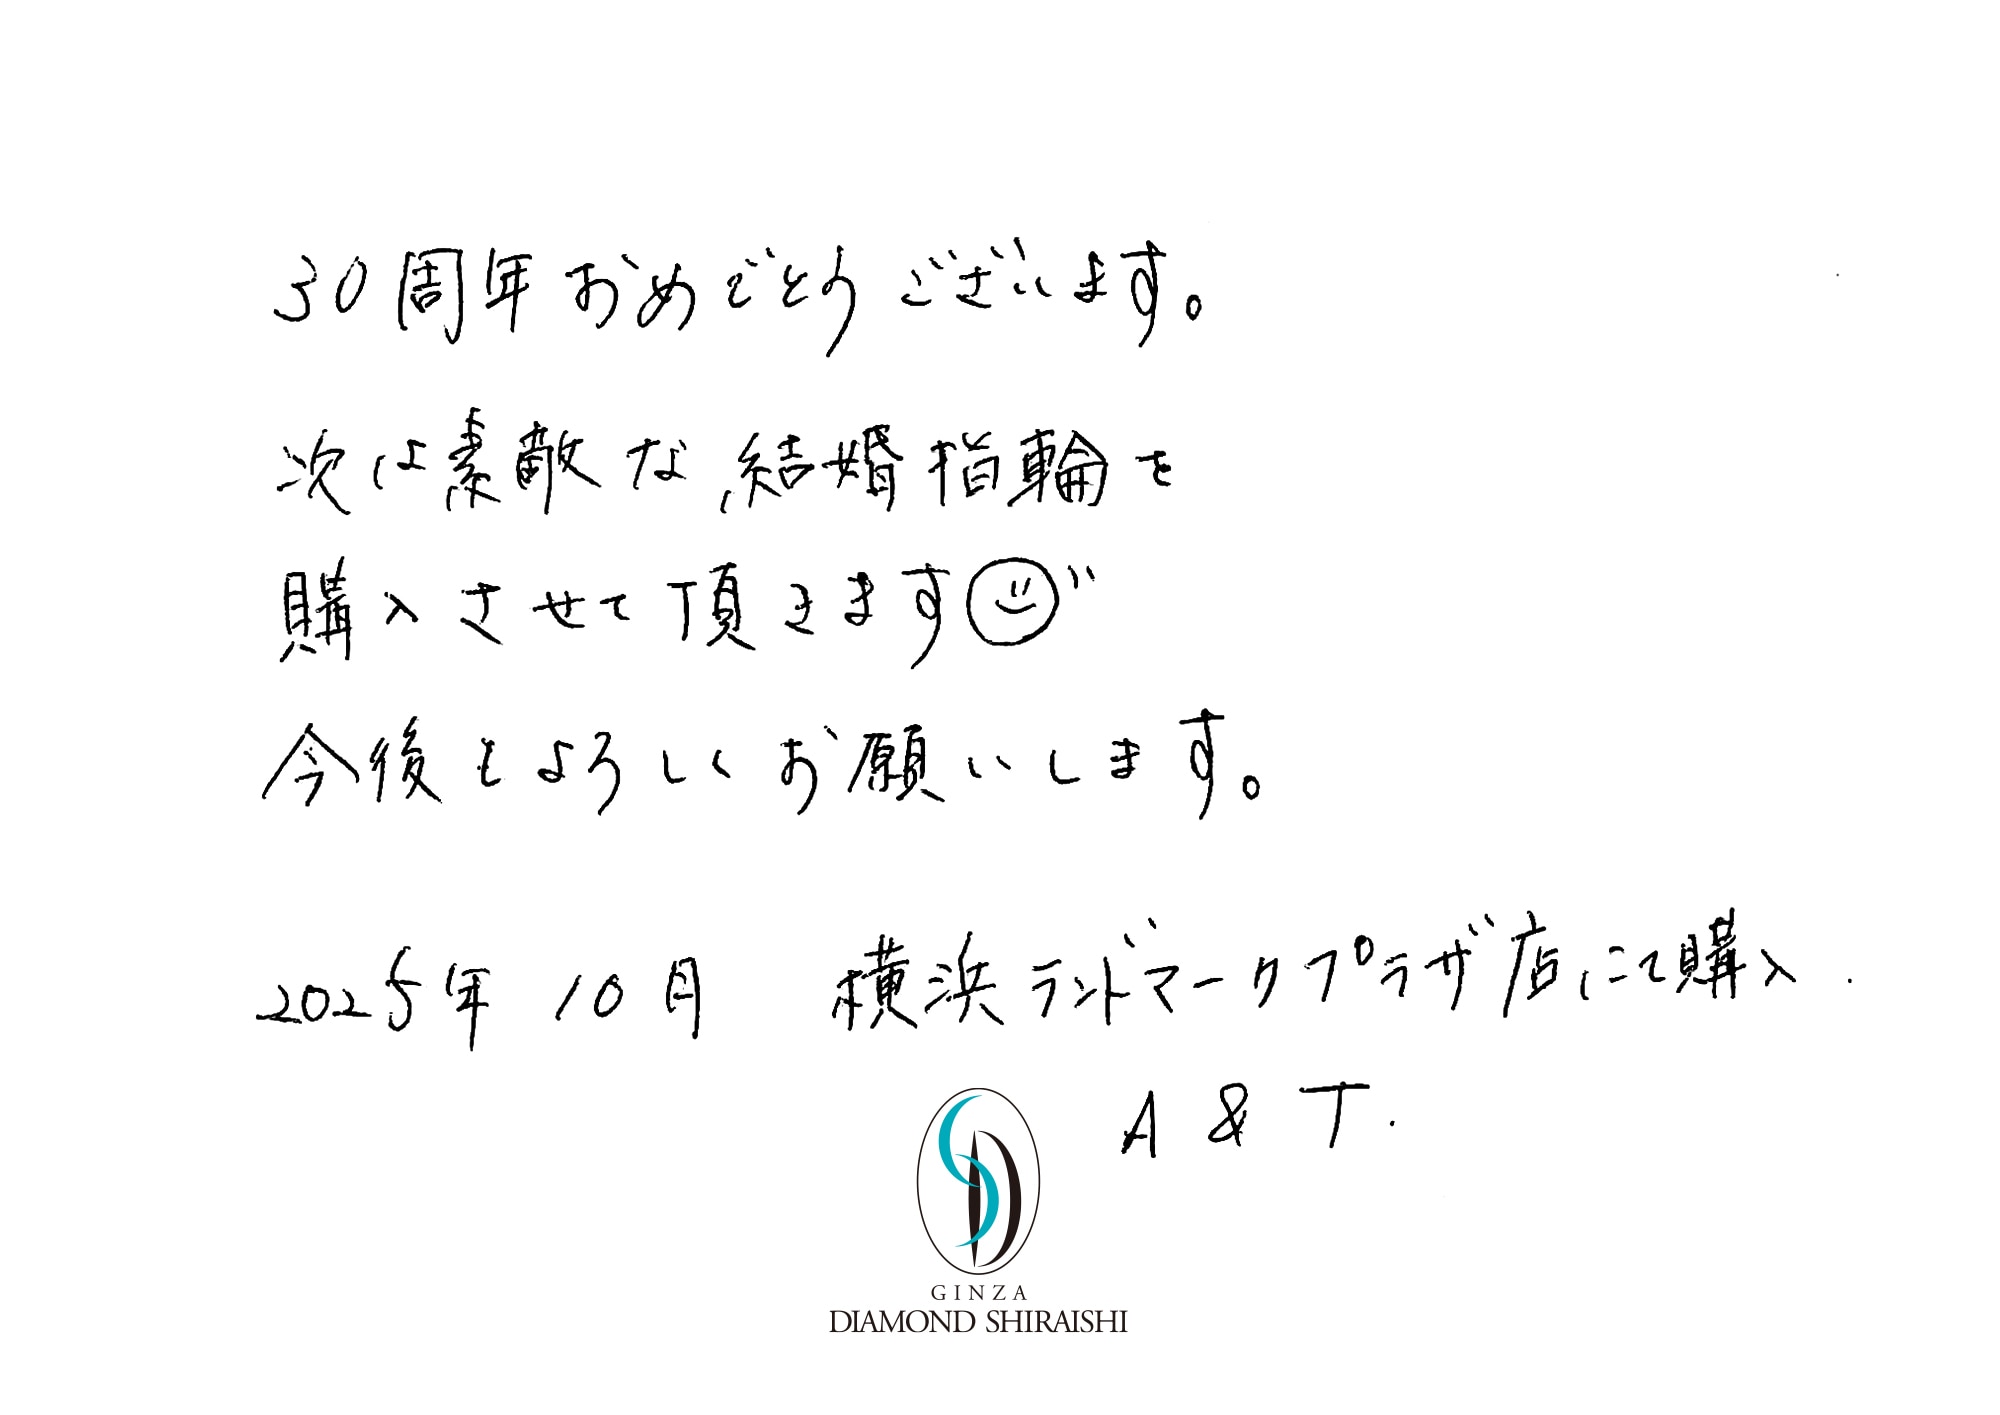 30周年おめでとうございます。
次は素敵な結婚指輪を
購入させて頂きます
今後もよろしくお願いします。
2025年 10月 横浜ランドマークプラザ店にて購入.
A & T.
GINZA
DIAMOND SHIRAISHI